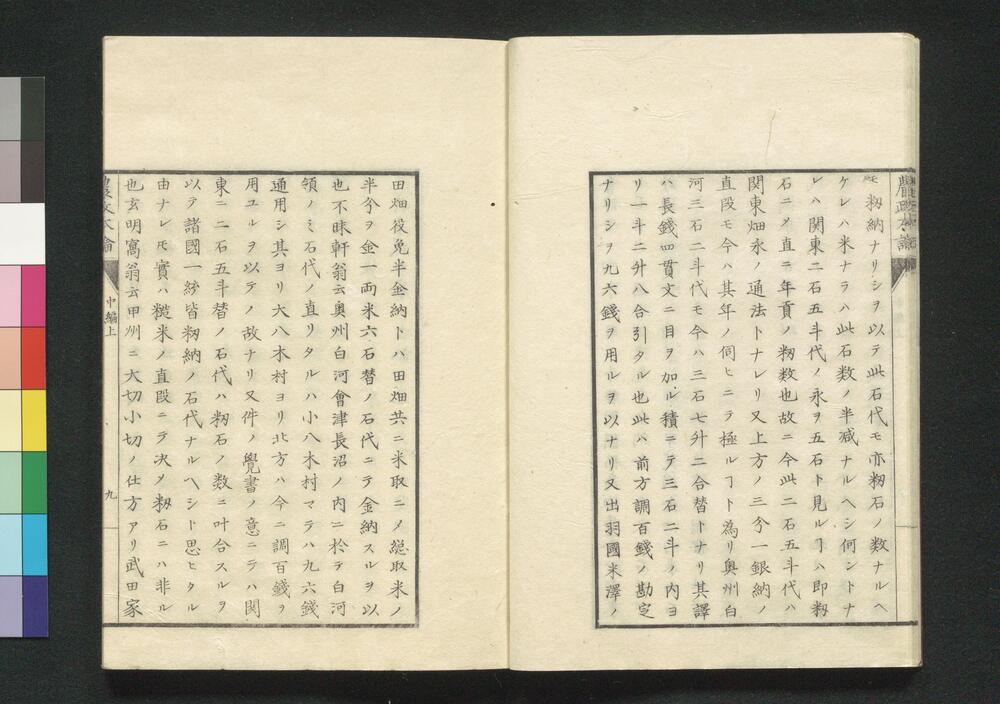 籾納ナリシヲ以テ此石代モ亦籾石ノ数ナルヘ
ケレハ米ナラハ此石数ノ半减ナルヘシ何ントナ
レハ関東二石五斗代ノ永ヲ五石ト見ルヿハ即籾
石ニメ直ニ年貢ノ籾数也故ニ今此二石五斗代ハ
関東畑永ノ通法トナレリ又上方ノ三分一銀納ノ
直段モ今ハ其年ノ伺ヒニテ極ルヿト為リ奥州白
河三石二斗代モ今ハ三石七升二合替トナリ其譯
ハ長錢四貫文ニ目ヲ加ル積ニテ三石二斗ノ内ヨ
リ一斗二升八合引タル也此ハ前方調百錢ノ勘定
ナリシヲ九六錢ヲ用ルヲ以ナリ又出羽國米澤ノ
田畑役免半金納トハ田畑共ニ米取ニメ總取米ノ
半分ヲ金一両米六石替ノ石代ニテ金納スルヲ以
也不昧軒翁云奥州白河會津長沼ノ内ニ於テ白河
領ノミ石代ノ直リタルハ小八木村マテハ九六錢
通用シ其ヨリ大八木村ヨリ北方ハ今ニ調百錢ヲ
用ユルヲ以テノ故ナリ又件ノ覺書ノ意ニテハ関
東ニ二石五斗替ノ石代ハ籾石ノ数ニ叶合スルヲ
以テ諸國一統皆籾納ノ石代ナルヘシト思ヒタル
由ナレ𪜈實ハ糙米ノ直段ニテ决メ籾石ニハ非ル
也玄明窩翁云甲州ニ大切小切ノ仕方アリ武田家
中編上
九